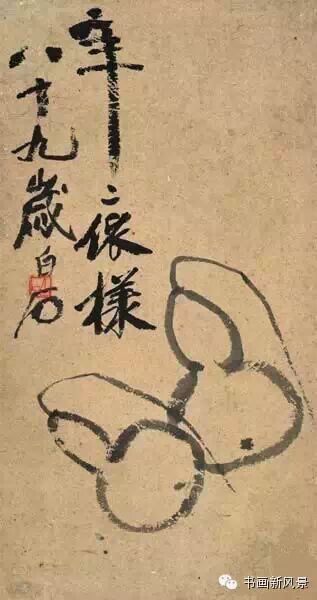 年〻依樣
八十九歲白石
书画新风景